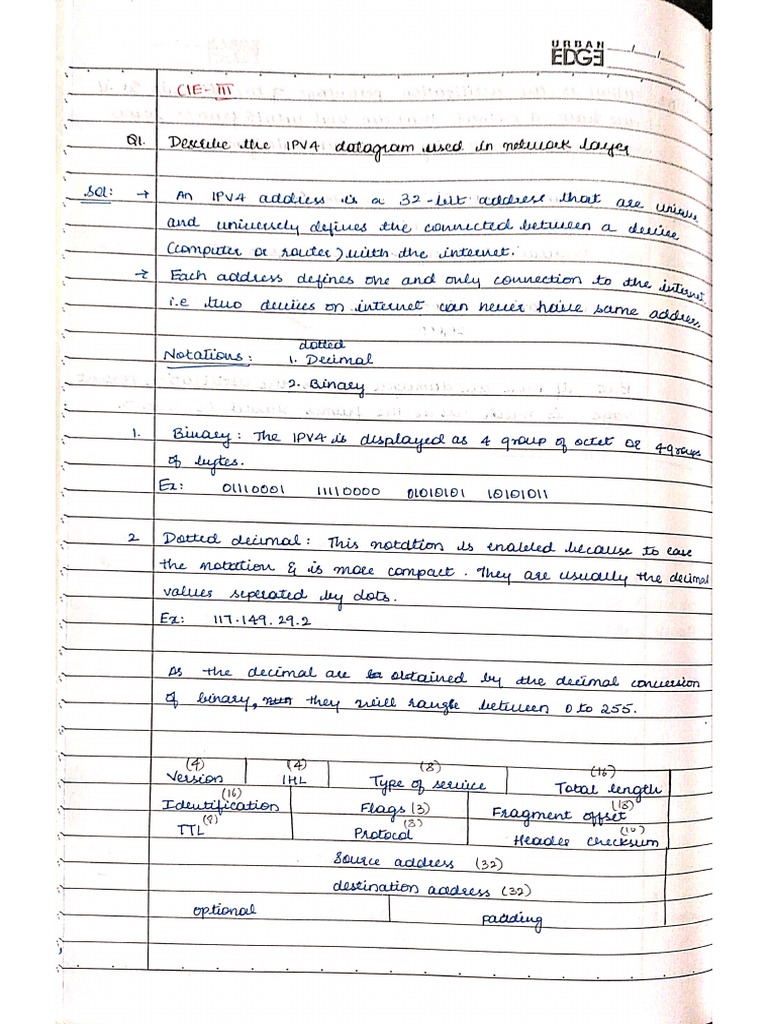 URBAN
EDGE / /
CIE-III
Q1. Describe the IPV4 datagram used in network layer
Sol: → An IPV4 address is a 32-bit address that are unique
and universely defines the connected between a device
(computer or router) with the internet.
→ Each address defines one and only connection to the internet
i.e two devices on internet can never have same address
dotted
Notations: 1. Decimal
2. Binary
1. Binary: The IPV4 is displayed as 4 group of octet or 4 groups
of bytes.
Ex: 01110001 11110000 01010101 10101011
2 Dotted decimal: This notation is enabled because to ease
the notation & is more compact. They are usually the decimal
values seperated by dots.
Ex: 117.149.29.2
As the decimal are obtained by the decimal conversion
of binary, they will range between 0 to 255.
(4) (4) (8) (16)
Version IHL Type of service Total length
(16) (13)
Identification Flags (3) Fragment offset
TTL (8) Protocol (8) Header checksum
Source address (32)
destination address (32)
optional padding